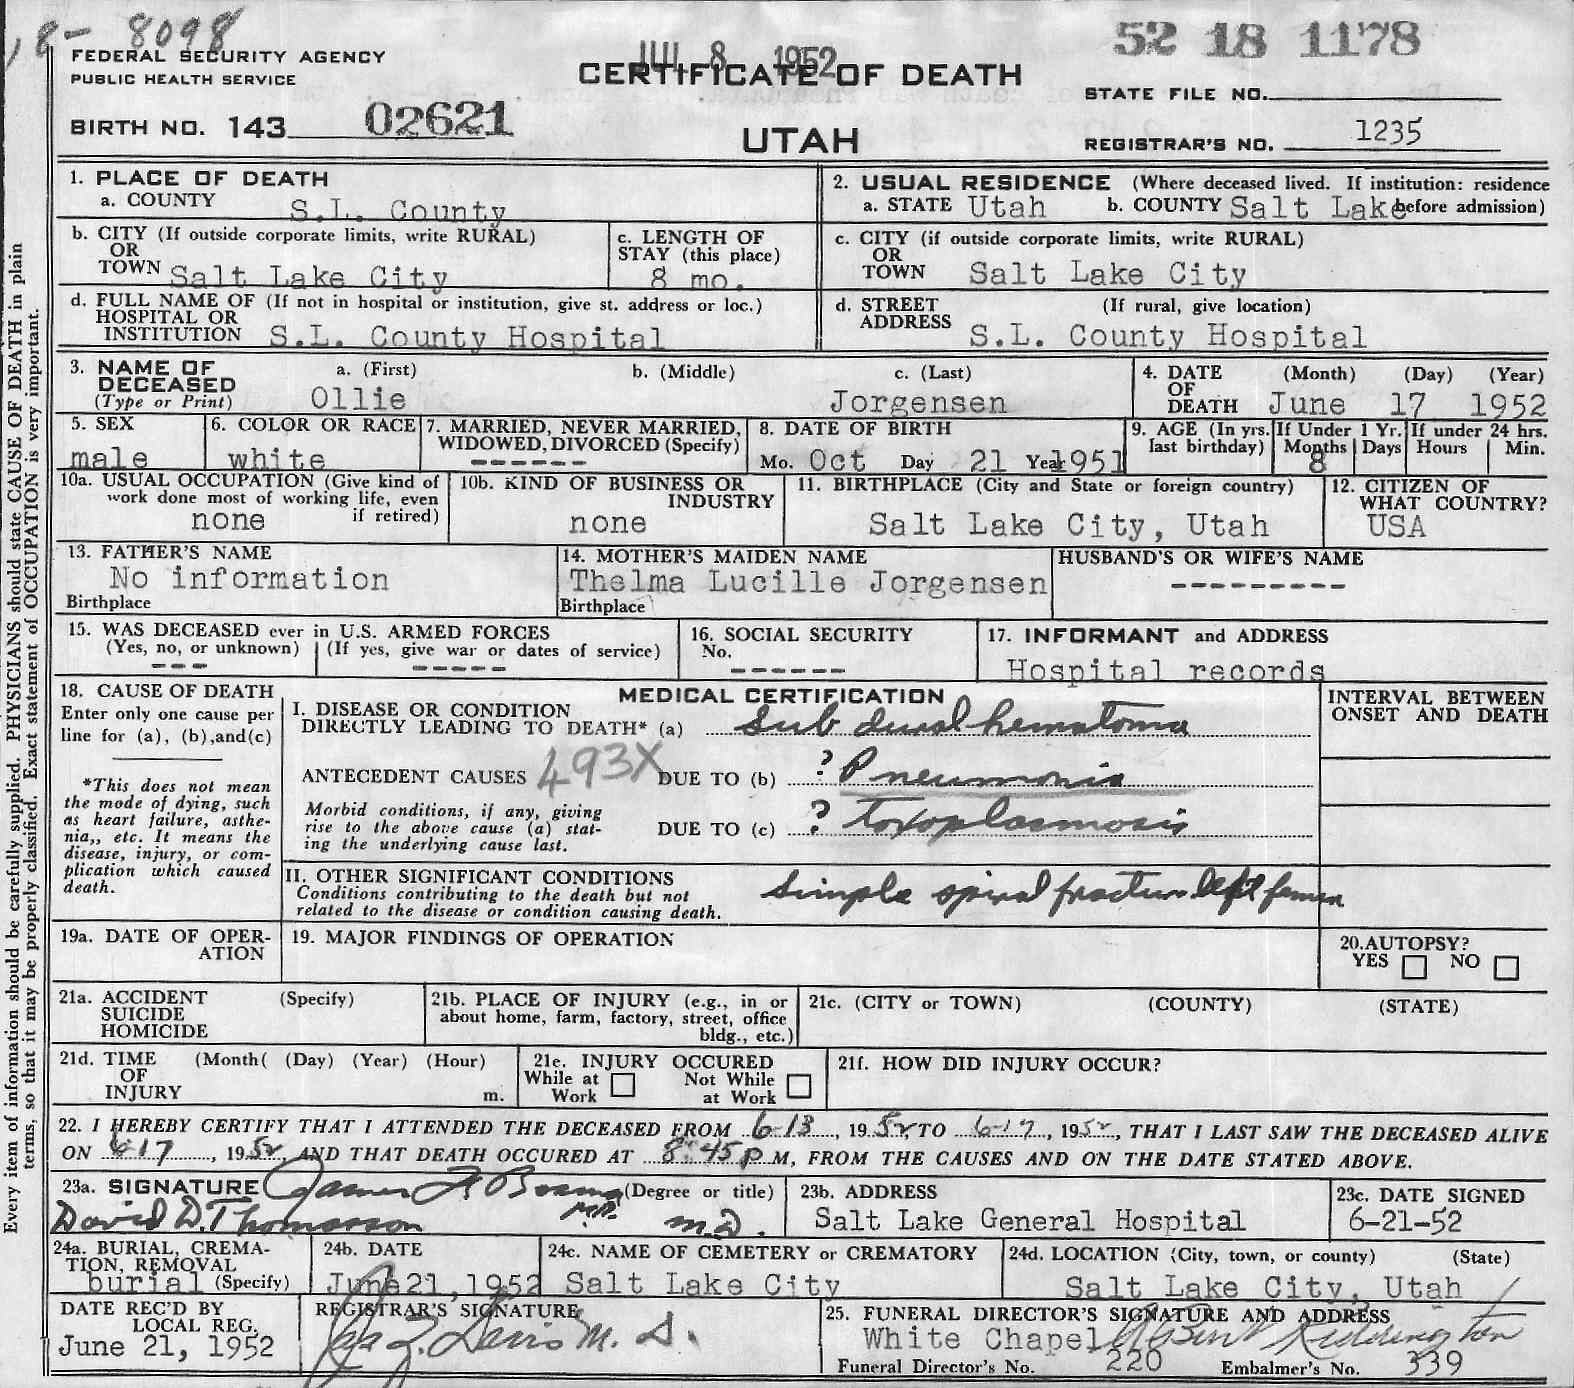 18- 8098
FEDERAL SECURITY AGENCY
PUBLIC HEALTH SERVICE
JUL 8 1952
CERTIFICATE OF DEATH
UTAH
52 18 1178
STATE FILE NO.
BIRTH NO. 143 02621
REGISTRAR'S NO. 1235
Every item of information should be carefully supplied. PHYSICIANS should state CAUSE OF DEATH in plain
terms, so that it may be properly classified. Exact statement of OCCUPATION is very important.
1. PLACE OF DEATH
a. COUNTY S.L. County
2. USUAL RESIDENCE (Where deceased lived. If institution: residence
a. STATE Utah b. COUNTY Salt Lake before admission)
b. CITY (If outside corporate limits, write RURAL)
OR
TOWN Salt Lake City
c. LENGTH OF
STAY (this place)
8 mo.
c. CITY (if outside corporate limits, write RURAL)
OR
TOWN Salt Lake City
d. FULL NAME OF (If not in hospital or institution, give st. address or loc.)
HOSPITAL OR
INSTITUTION S.L. County Hospital
d. STREET (If rural, give location)
ADDRESS S.L. County Hospital
3. NAME OF a. (First) b. (Middle) c. (Last)
DECEASED
(Type or Print) Ollie Jorgensen
4. DATE (Month) (Day) (Year)
OF
DEATH June 17 1952
5. SEX
male
6. COLOR OR RACE
white
7. MARRIED, NEVER MARRIED,
WIDOWED, DIVORCED (Specify)
------
8. DATE OF BIRTH
Mo. Oct Day 21 Year 1951
9. AGE (In yrs. last birthday)
If Under 1 Yr.
Months Days
8
If under 24 hrs.
Hours Min.
10a. USUAL OCCUPATION (Give kind of
work done most of working life, even
if retired)
none
10b. KIND OF BUSINESS OR
INDUSTRY
none
11. BIRTHPLACE (City and State or foreign country)
Salt Lake City, Utah
12. CITIZEN OF
WHAT COUNTRY?
USA
13. FATHER'S NAME
No information
Birthplace
14. MOTHER'S MAIDEN NAME
Thelma Lucille Jorgensen
Birthplace
HUSBAND'S OR WIFE'S NAME
---------
15. WAS DECEASED ever in U.S. ARMED FORCES
(Yes, no, or unknown) (If yes, give war or dates of service)
--- -----
16. SOCIAL SECURITY
No.
------
17. INFORMANT and ADDRESS
Hospital records
18. CAUSE OF DEATH
Enter only one cause per
line for (a), (b),and(c)
*This does not mean
the mode of dying, such
as heart failure, asthe-
nia,, etc. It means the
disease, injury, or com-
plication which caused
death.
MEDICAL CERTIFICATION
I. DISEASE OR CONDITION
DIRECTLY LEADING TO DEATH* (a) Sub dural hematoma
ANTECEDENT CAUSES 493X DUE TO (b) ? Pneumonia
Morbid conditions, if any, giving
rise to the above cause (a) stat-
ing the underlying cause last.
DUE TO (c) ? Toxoplasmosis
INTERVAL BETWEEN
ONSET AND DEATH
II. OTHER SIGNIFICANT CONDITIONS
Conditions contributing to the death but not
related to the disease or condition causing death.
Simple spiral fracture left femur
19a. DATE OF OPER-
ATION
19. MAJOR FINDINGS OF OPERATION
20.AUTOPSY?
YES NO
21a. ACCIDENT (Specify)
SUICIDE
HOMICIDE
21b. PLACE OF INJURY (e.g., in or
about home, farm, factory, street, office
bldg., etc.)
21c. (CITY or TOWN) (COUNTY) (STATE)
21d. TIME (Month( (Day) (Year) (Hour)
OF
INJURY m.
21e. INJURY OCCURED
While at Work Not While at Work
21f. HOW DID INJURY OCCUR?
22. I HEREBY CERTIFY THAT I ATTENDED THE DECEASED FROM 6-13, 1952, TO 6-17, 1952, THAT I LAST SAW THE DECEASED ALIVE
ON 6-17, 1952, AND THAT DEATH OCCURED AT 8:45 P M, FROM THE CAUSES AND ON THE DATE STATED ABOVE.
23a. SIGNATURE James (Degree or title)
David D. Thomasson M.D. M.D.
23b. ADDRESS
Salt Lake General Hospital
23c. DATE SIGNED
6-21-52
24a. BURIAL, CREMA-
TION, REMOVAL
burial (Specify)
24b. DATE
June 21, 1952
24c. NAME OF CEMETERY or CREMATORY
Salt Lake City
24d. LOCATION (City, town, or county) (State)
Salt Lake City, Utah
DATE REC'D BY
LOCAL REG.
June 21, 1952
REGISTRAR'S SIGNATURE
Davis M. D.
25. FUNERAL DIRECTOR'S SIGNATURE AND ADDRESS
White Chapel
Funeral Director's No. 220 Embalmer's No. 339